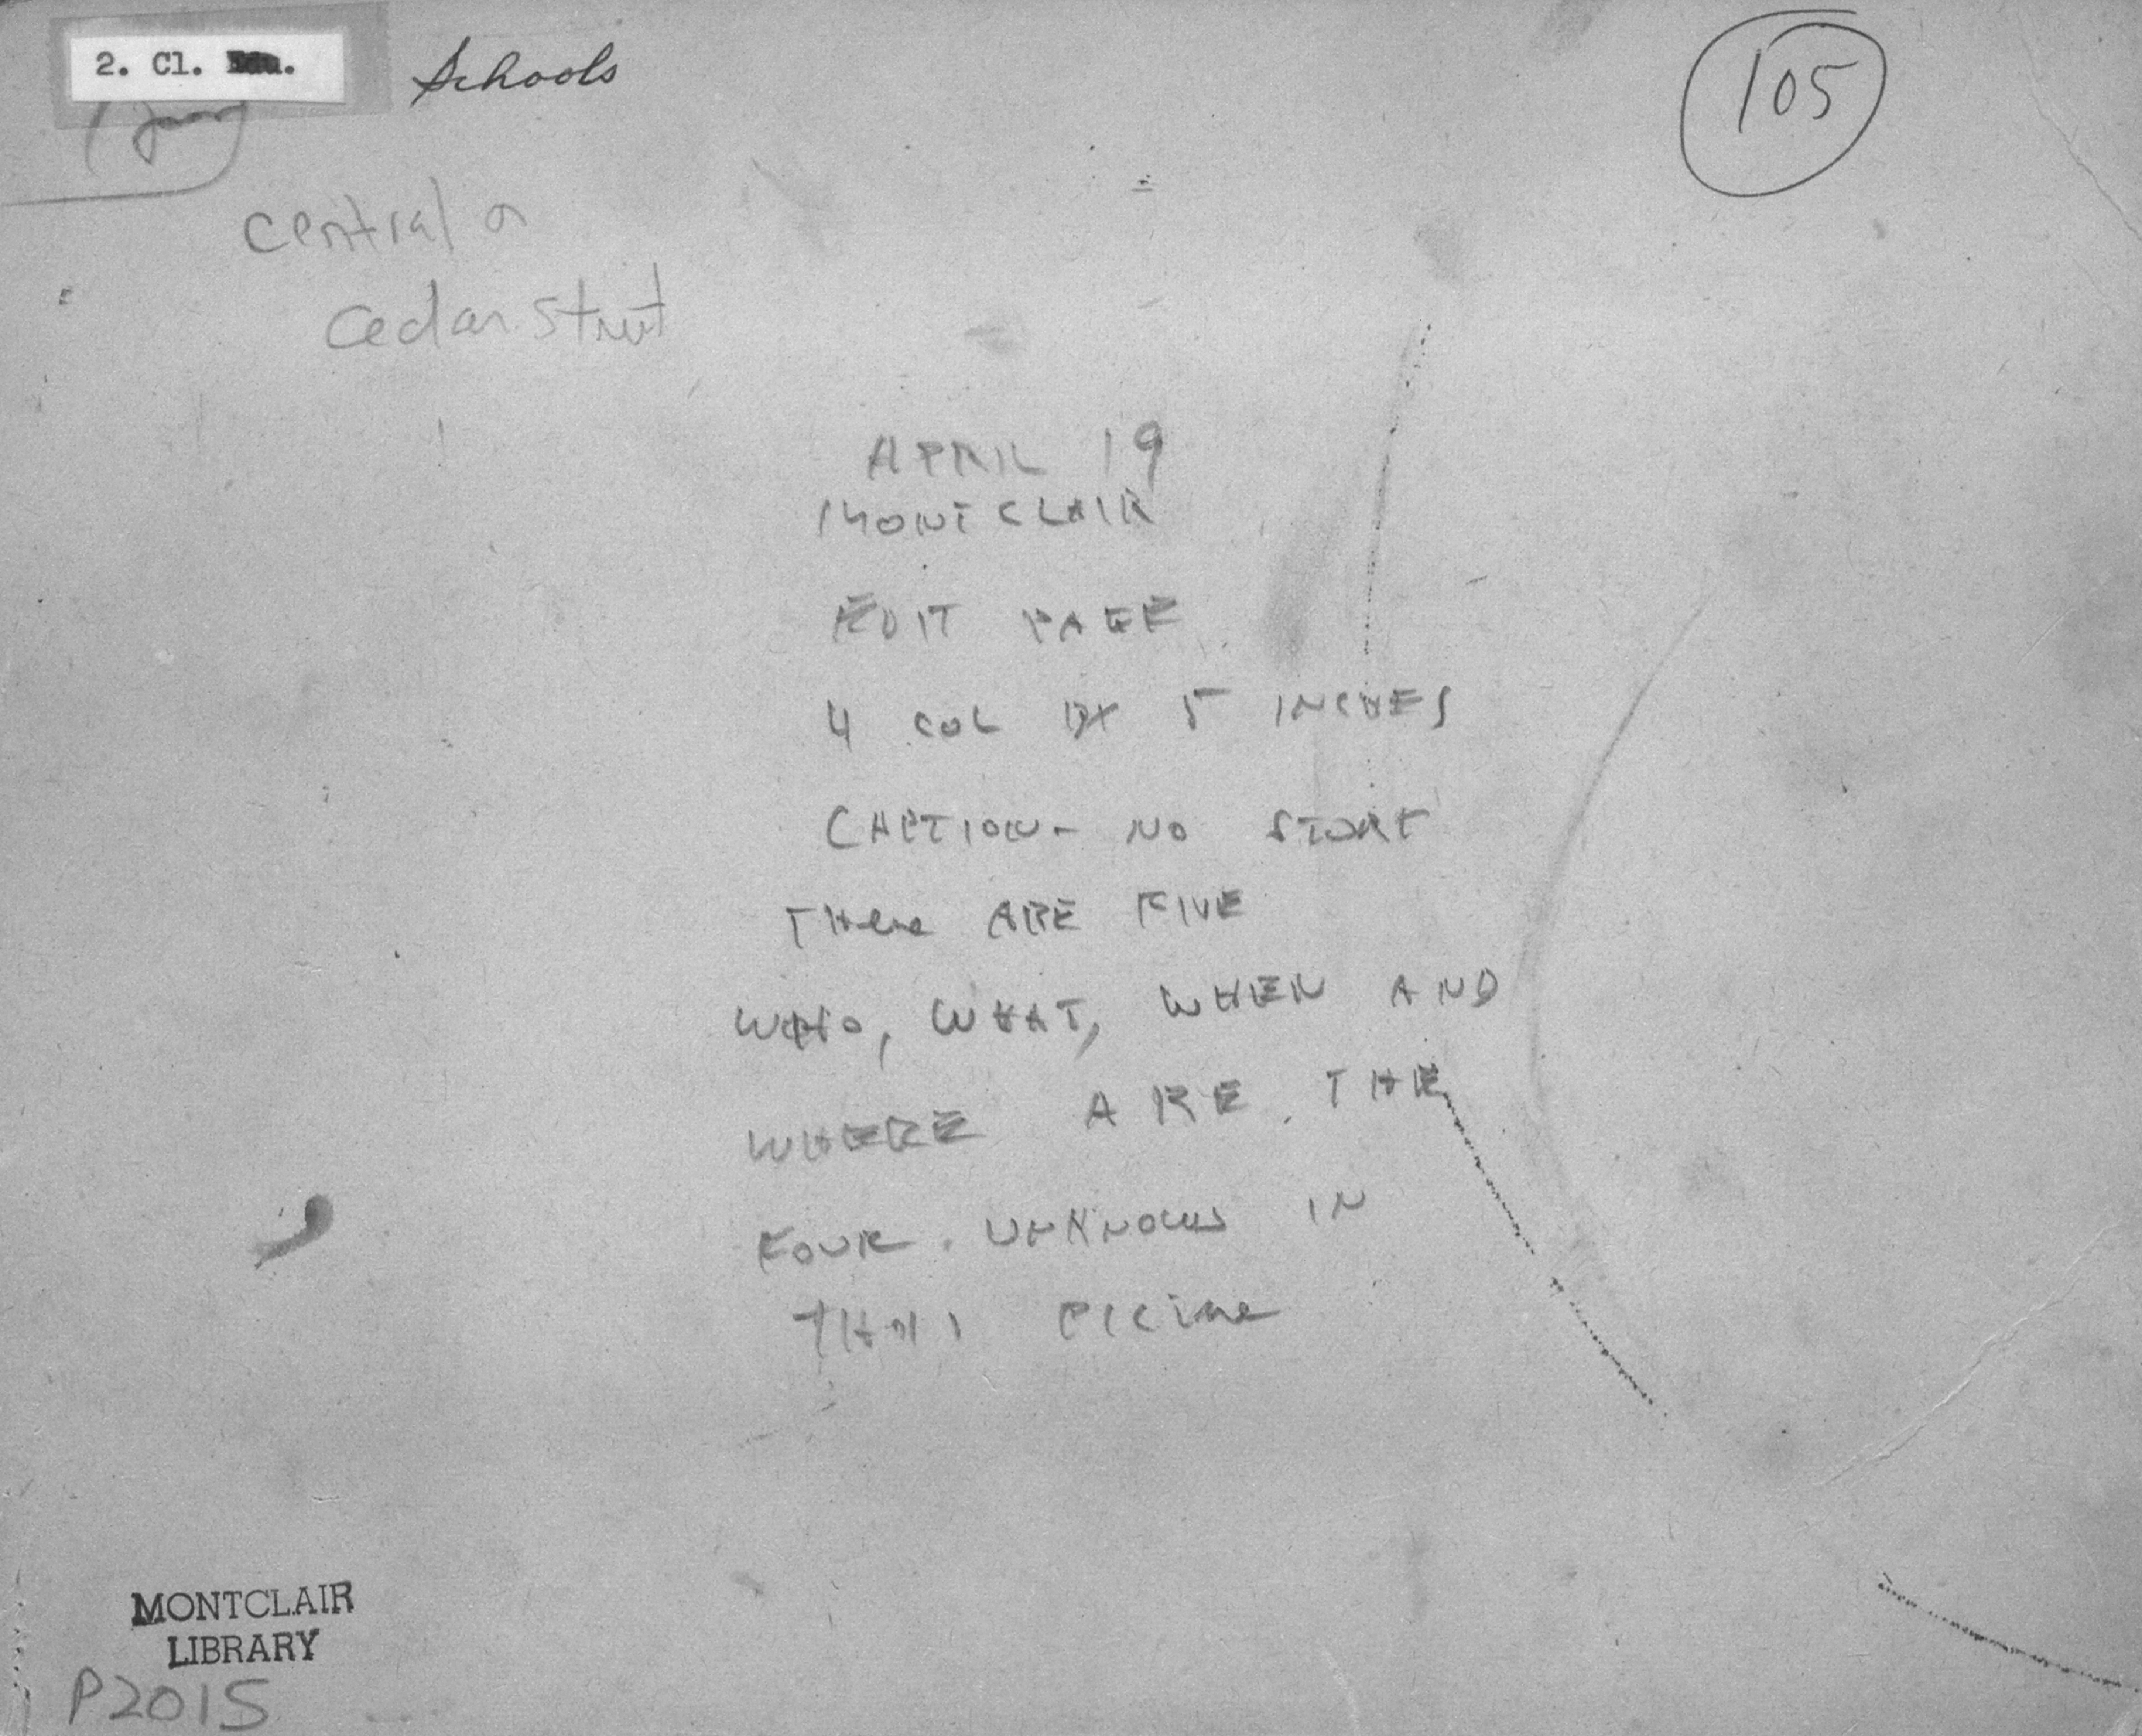 2. Cl. Schools
105
central or
cedar street
APRIL 19
MONTCLAIR
EDIT PAGE
4 COL BY 5 INCHES
CAPTION - NO STORY
THERE ARE FIVE
WHO, WHAT, WHEN AND
WHERE ARE THE
FOUR UNKNOWNS IN
THIS PICTURE
MONTCLAIR
LIBRARY
P2015